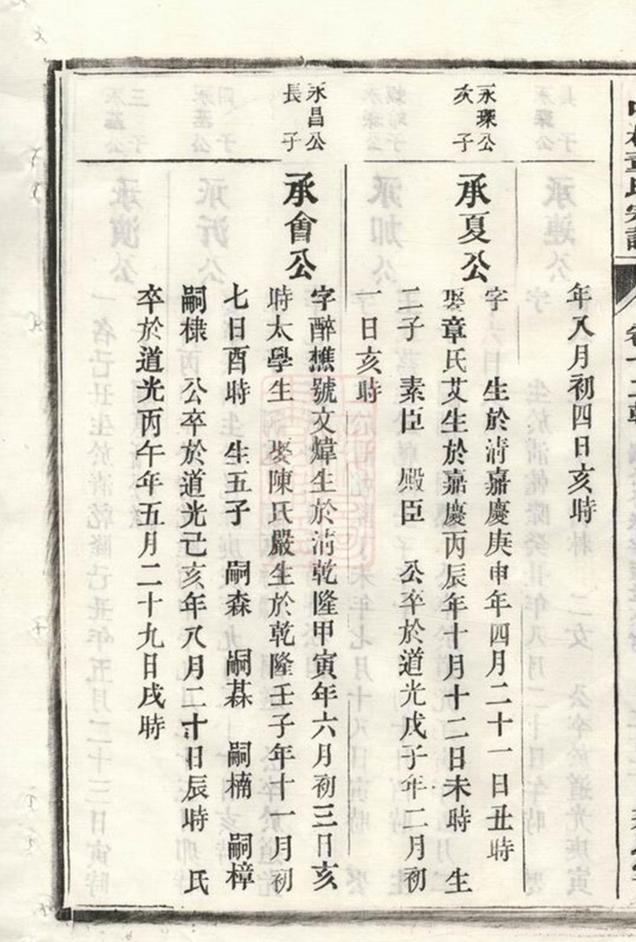 章氏宗譜
年八月初四日亥時
永琛公
次子
承夏公
字 生於清嘉慶庚申年四月二十一日丑時
娶章氏艾生於嘉慶丙辰年十月十二日未時 生
二子 素臣 殿臣 公卒於道光戊子年二月初
一日亥時
永昌公
長子
承會公
字醉樵號文煒生於清乾隆甲寅年六月初三日亥
時太學生 娶陳氏嚴生於乾隆壬子年十一月初
七日酉時 生五子 嗣森 嗣棊 嗣楠 嗣樟
嗣棣 公卒於道光己亥年八月二十日辰時 氏
卒於道光丙午年五月二十九日戌時